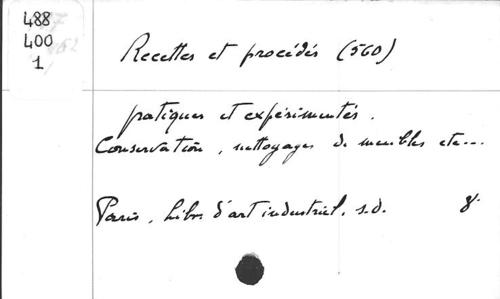 488
400
1
Recettes et procédés (560)
pratiques et expérimentés.
Conservation, nettoyages de meubles etc...
Paris, Libr. d'art industriel. s.d. 8°